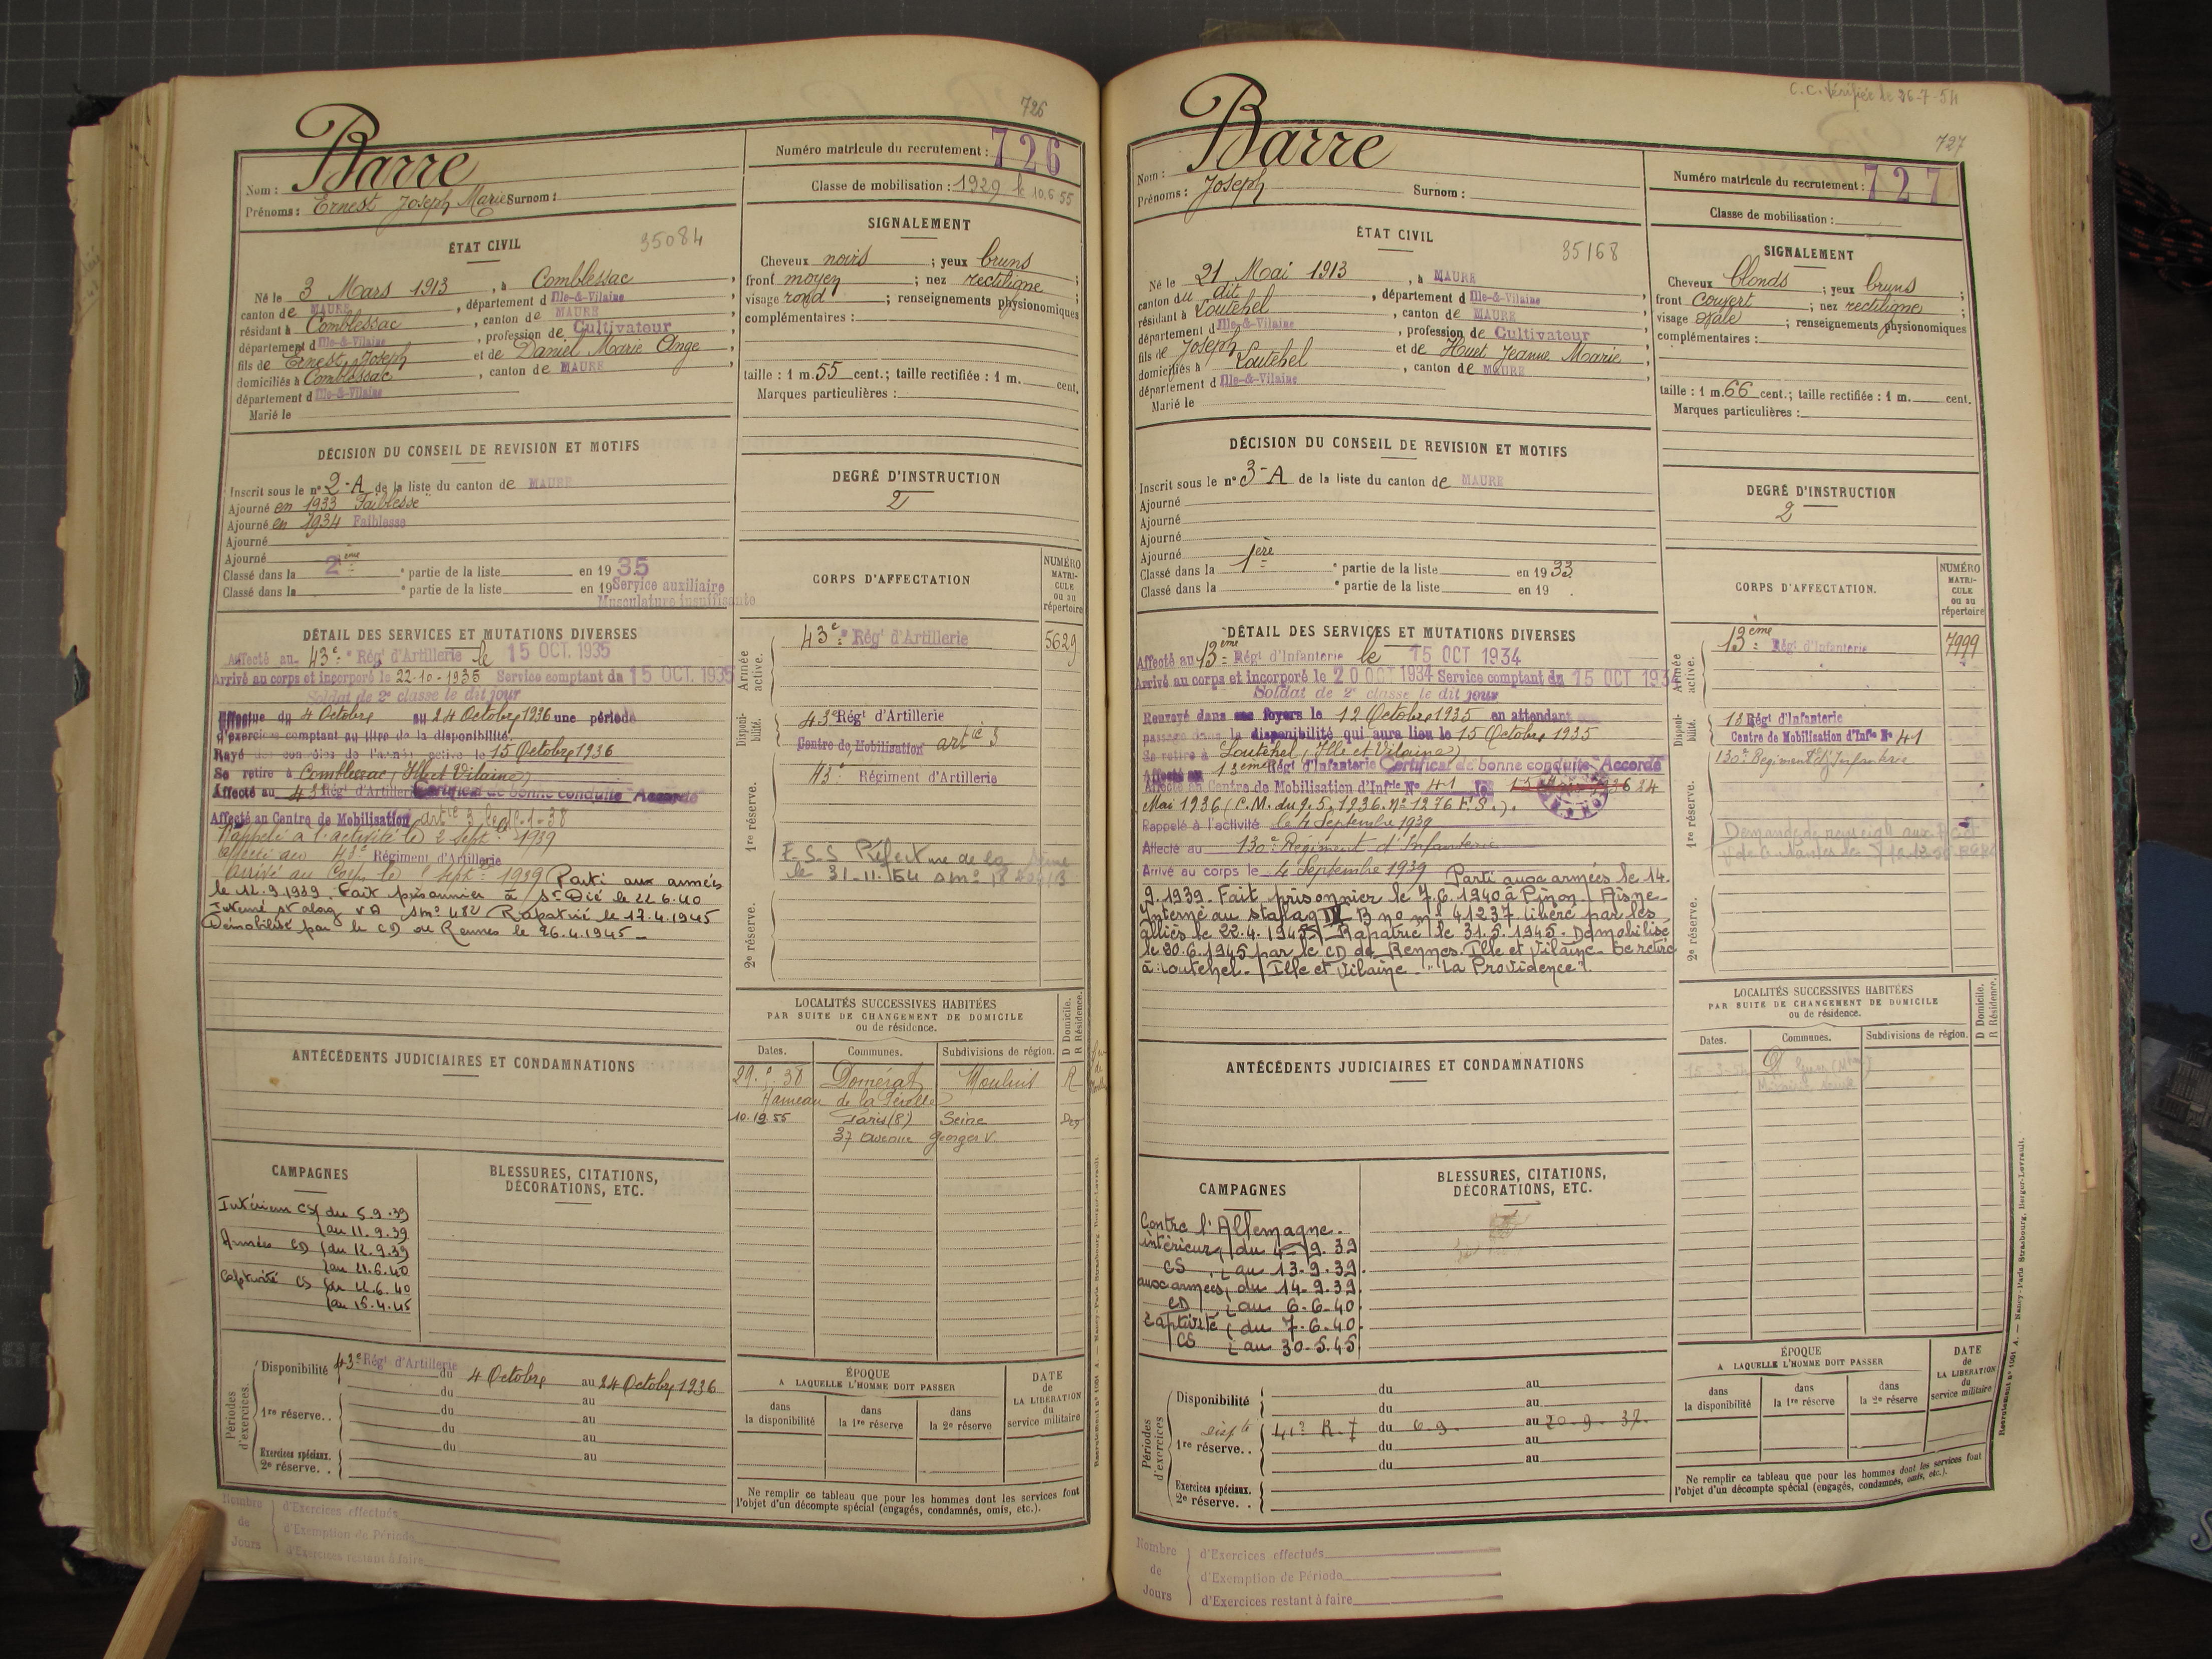 726
Barre
Nom :
Prénoms : Ernest Joseph Marie Surnom :
Numéro matricule du recrutement : 726
Classe de mobilisation : 1929 le 10.6 55
ÉTAT CIVIL
35084
Né le 3 Mars 1913, à Comblessac,
canton de MAURE, département d Ille-&-Vilaine
résidant à Comblessac, canton de MAURE,
département d Ille-&-Vilaine, profession de Cultivateur
fils de Ernest, Joseph et de Daniel Marie Ange,
domiciliés à Comblessac, canton de MAURE,
département d Ille-&-Vilaine
Marié le
SIGNALEMENT
Cheveux noirs ; yeux bruns ;
front moyen ; nez rectiligne ;
visage rond ; renseignements physionomiques
complémentaires :
taille : 1 m. 55 cent.; taille rectifiée : 1 m. cent.
Marques particulières :
DÉCISION DU CONSEIL DE REVISION ET MOTIFS
Inscrit sous le n° 2-A de la liste du canton de MAURE
Ajourné en 1933 Faiblesse
Ajourné en 1934 Faiblesse
Ajourné
Ajourné
Classé dans la 2ème e partie de la liste en 1935
Classé dans la e partie de la liste en 19 Service auxiliaire
Musculature insuffisante
DEGRÉ D'INSTRUCTION
2
CORPS D'AFFECTATION
NUMÉRO MATRICULE ou au répertoire
Armée active.
43e Régt d'Artillerie 5629
Disponibilité.
43e Régt d'Artillerie
Centre de Mobilisation artie 3
1re réserve.
43e Régiment d'Artillerie
Préfecture de la
le 31-11.54
2e réserve.
DÉTAIL DES SERVICES ET MUTATIONS DIVERSES
Affecté au 43e Régt d'Artillerie le 15 OCT. 1935
Arrivé au corps et incorporé le 22-10-1935 Service comptant du 15 OCT. 1935
Soldat de 2e classe le dit jour
Effectue du 4 Octobre au 24 Octobre 1936 une période
d'exercice comptant au titre de la disponibilité.
Rayé des contrôles de l'armée active le 15 Octobre 1936
Se retire à Comblessac (Ille et Vilaine)
Affecté au 43 Régt d'Artillerie Certificat de bonne conduite Accordé
Affecté au Centre de Mobilisation artie 3
Rappelé à l'activité le 2 Septe 1939
affecté au 43e Régiment d'Artillerie
arrivé au Corps le Septe 1939 Parti aux armées
le 12.9.1939. Fait prisonnier à St Dié le 22.6.40
Interné stalag VA Rapatrié le 17.4.1945
Démobilisé par le CD de Rennes le 26.4.1945
LOCALITÉS SUCCESSIVES HABITÉES
PAR SUITE DE CHANGEMENT DE DOMICILE
ou de résidence.
D Domicile.
R Résidence.
Dates. Communes. Subdivisions de région.
38 Domérat R
Hameau de la
10.12.55 Paris (8) Seine
37 avenue Georges V.
ANTÉCÉDENTS JUDICIAIRES ET CONDAMNATIONS
CAMPAGNES
Intérieur CS du 5.9.39
au 11.9.39
Armées CD du 12.9.39
au 21.6.40
Captivité CS du 22.6.40
au 16.4.45
BLESSURES, CITATIONS,
DÉCORATIONS, ETC.
Périodes d'exercices.
Disponibilité 43e Régt d'Artillerie du 4 Octobre au 24 Octobre 1936
du au
1re réserve.. du au
du au
Exercices spéciaux.
2e réserve. . du au
ÉPOQUE
A LAQUELLE L'HOMME DOIT PASSER
dans la disponibilité
dans la 1re réserve
dans la 2e réserve
DATE de LA LIBÉRATION du service militaire
Ne remplir ce tableau que pour les hommes dont les services font
l'objet d'un décompte spécial (engagés, condamnés, omis, etc.).
Nombre de Jours
d'Exercices effectués
d'Exemption de Période
d'Exercices restant à faire
C.C. Vérifiée le 26-7-54
727
Barre
Nom :
Prénoms : Joseph Surnom :
Numéro matricule du recrutement : 727
Classe de mobilisation :
ÉTAT CIVIL
35168
Né le 21 Mai 1913, à MAURE
canton du dit, département d Ille-&-Vilaine,
résidant à Loutehel, canton de MAURE,
département d Ille-&-Vilaine, profession de Cultivateur
fils de Joseph et de Huet Jeanne Marie
domiciliés à Loutehel, canton de MAURE,
département d Ille-&-Vilaine
Marié le
SIGNALEMENT
Cheveux blonds ; yeux bruns ;
front couvert ; nez rectiligne ;
visage ovale ; renseignements physionomiques
complémentaires :
taille : 1 m. 66 cent.; taille rectifiée : 1 m. cent.
Marques particulières :
DÉCISION DU CONSEIL DE REVISION ET MOTIFS
Inscrit sous le n° 3-A de la liste du canton de MAURE
Ajourné
Ajourné
Ajourné
Ajourné
Classé dans la 1ère e partie de la liste en 1933
Classé dans la e partie de la liste en 19 .
DEGRÉ D'INSTRUCTION
2
CORPS D'AFFECTATION.
NUMÉRO MATRICULE ou au répertoire
Armée active.
13ème Régt d'Infanterie 7999
Disponibilité.
18 Régt d'Infanterie
Centre de Mobilisation d'Infie No 41
1re réserve.
130e Régiment d'Infanterie
2e réserve.
DÉTAIL DES SERVICES ET MUTATIONS DIVERSES
Affecté au 13ème Régt d'Infanterie le 15 OCT 1934
Arrivé au corps et incorporé le 20 OCT 1934 Service comptant du 15 OCT 1934
Soldat de 2e classe le dit jour
Renvoyé dans ses foyers le 12 Octobre 1935 en attendant
passage dans la disponibilité qui aura lieu le 15 Octobre 1935
Se retire à Loutehel (Ille et Vilaine)
Affecté au 13eme Régt d'Infanterie Certificat de bonne conduite Accordé
Affecté au Centre de Mobilisation d'Infrie No 41 le 24
Mai 1936 (C.M. du 9.5.1936. No 1276 E.S.).
Rappelé à l'activité le 4 Septembre 1939
Affecté au 130e Régiment d'Infanterie
Arrivé au corps le 4 Septembre 1939 Parti aux armées le 14.
9.1939. Fait prisonnier le 7.6.1940 à Pinon - Aisne-
Interné au stalag IV B no ml 41237 libéré par les
alliés le 22.4.1945 - Rapatrié le 31.5.1945. Démobilisé
le 20.6.1945 par le CD de Rennes. Ille et Vilaine - Se retire
à Loutehel. Ille et Vilaine "La Providence".
LOCALITÉS SUCCESSIVES HABITÉES
PAR SUITE DE CHANGEMENT DE DOMICILE
ou de résidence.
D Domicile.
R Résidence.
Dates. Communes. Subdivisions de région.
ANTÉCÉDENTS JUDICIAIRES ET CONDAMNATIONS
CAMPAGNES
Contre l'Allemagne.
intérieur du 4-9.39
CS au 13.9.39.
aux armées du 14.9.39
CD au 6-6-40
Captivité du 7.6.40
CS au 30.5.45
BLESSURES, CITATIONS,
DÉCORATIONS, ETC.
Périodes d'exercices
Disponibilité du au
du au
41e R.I du 6.9. au 20.9.37.
1re réserve.. du au
du au
Exercices spéciaux.
2e réserve. .
ÉPOQUE
A LAQUELLE L'HOMME DOIT PASSER
dans la disponibilité
dans la 1re réserve
dans la 2e réserve
DATE de LA LIBÉRATION du service militaire
Ne remplir ce tableau que pour les hommes dont les services font
l'objet d'un décompte spécial (engagés, condamnés, omis, etc.).
Nombre de Jours
d'Exercices effectués
d'Exemption de Période
d'Exercices restant à faire